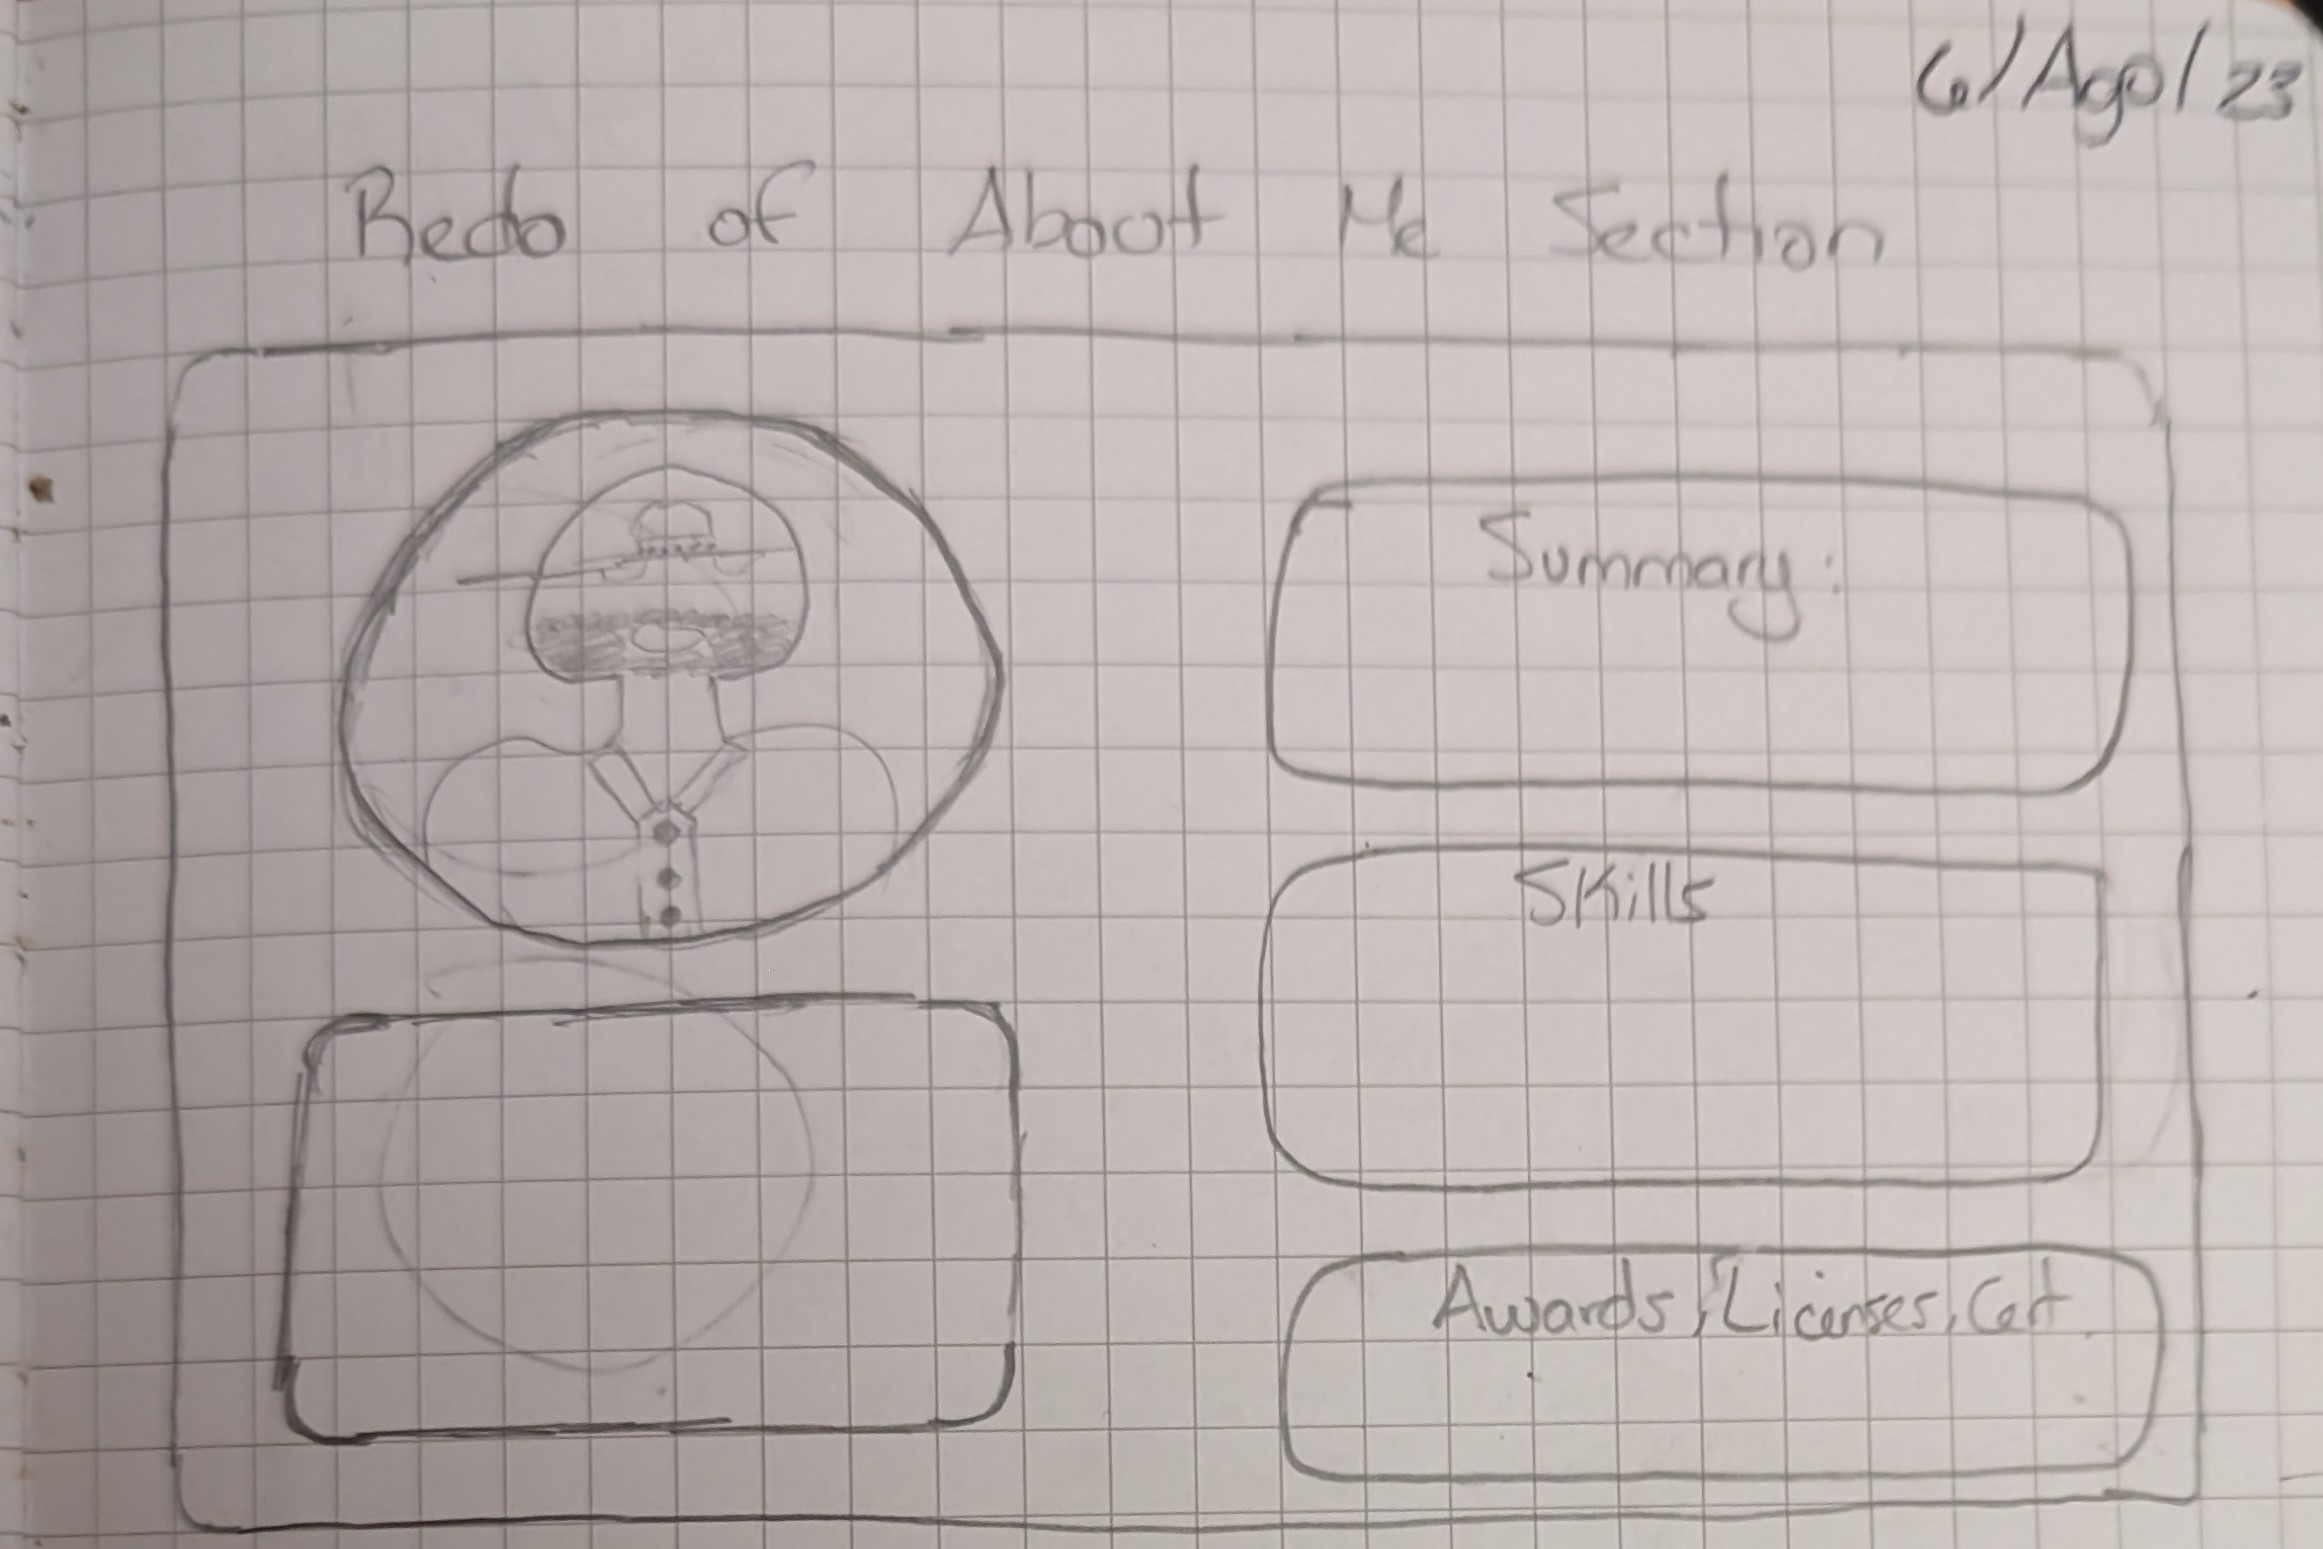 6/Ago/23
Redo of About Me Section
Summary:
Skills
Awards, Licenses, Cert.